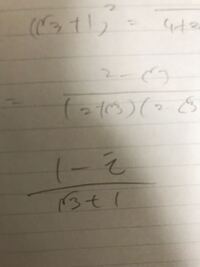 (√3+1)² =
2-√3
= (2+√3)(2-√3
1-i
√3+1